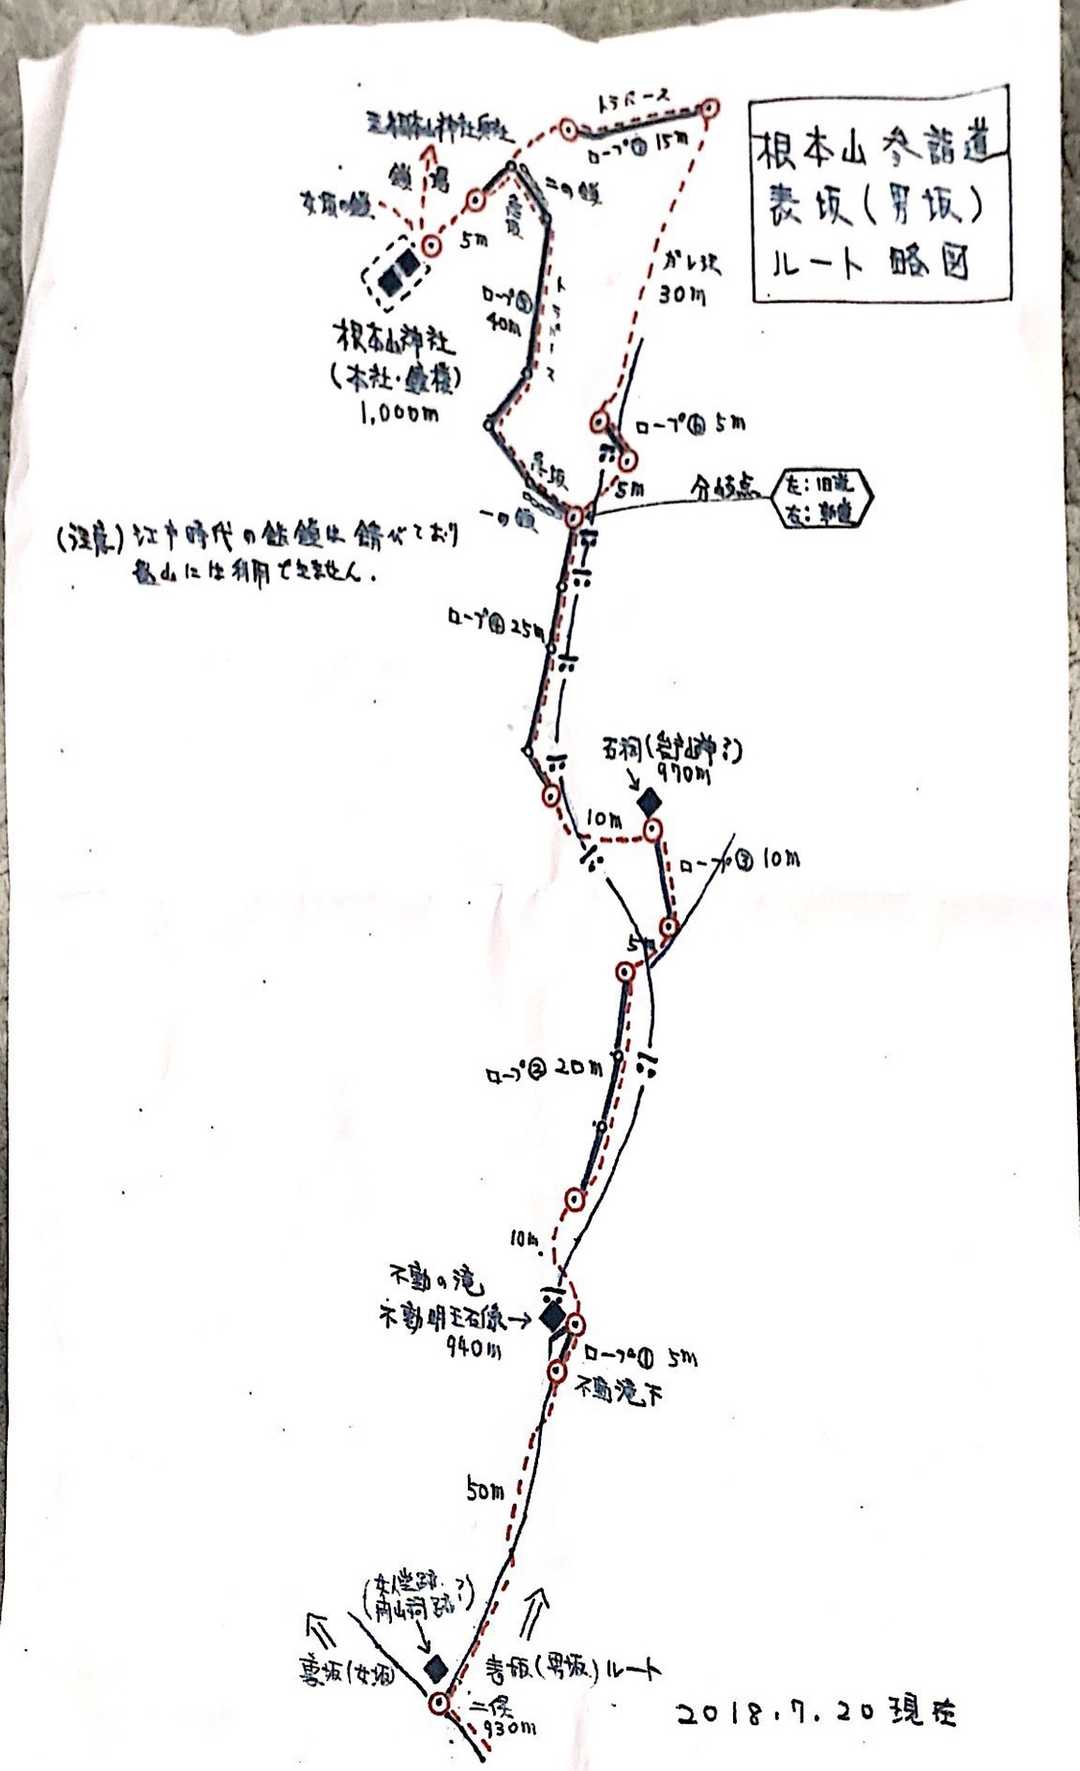 根本山参詣道
表坂(男坂)
ルート略図
トラバース
ロープ⑦ 15m
至根本山神社奥社
鎖場
女坂の鎖
二の鎖
5m
ガレ沢
30m
ロープ⑤
40m
トラバース
根本山神社
(本社・鐘楼)
1,000m
ロープ⑥ 5m
5m
分岐点
左:旧道
右:新道
一の鎖
(注意)江戸時代の鉄鎖は錆びており
登山には利用できません.
ロープ④ 25m
石祠(岩戸山神?)
970m
10m
ロープ③ 10m
5m
ロープ② 20m
10m.
不動の滝
不動明王石像→
940m
ロープ① 5m
不動滝下
50m
(女人堂跡?
祠跡?)
裏坂(女坂)
表坂(男坂)ルート
二俣
930m
2018.7.20現在